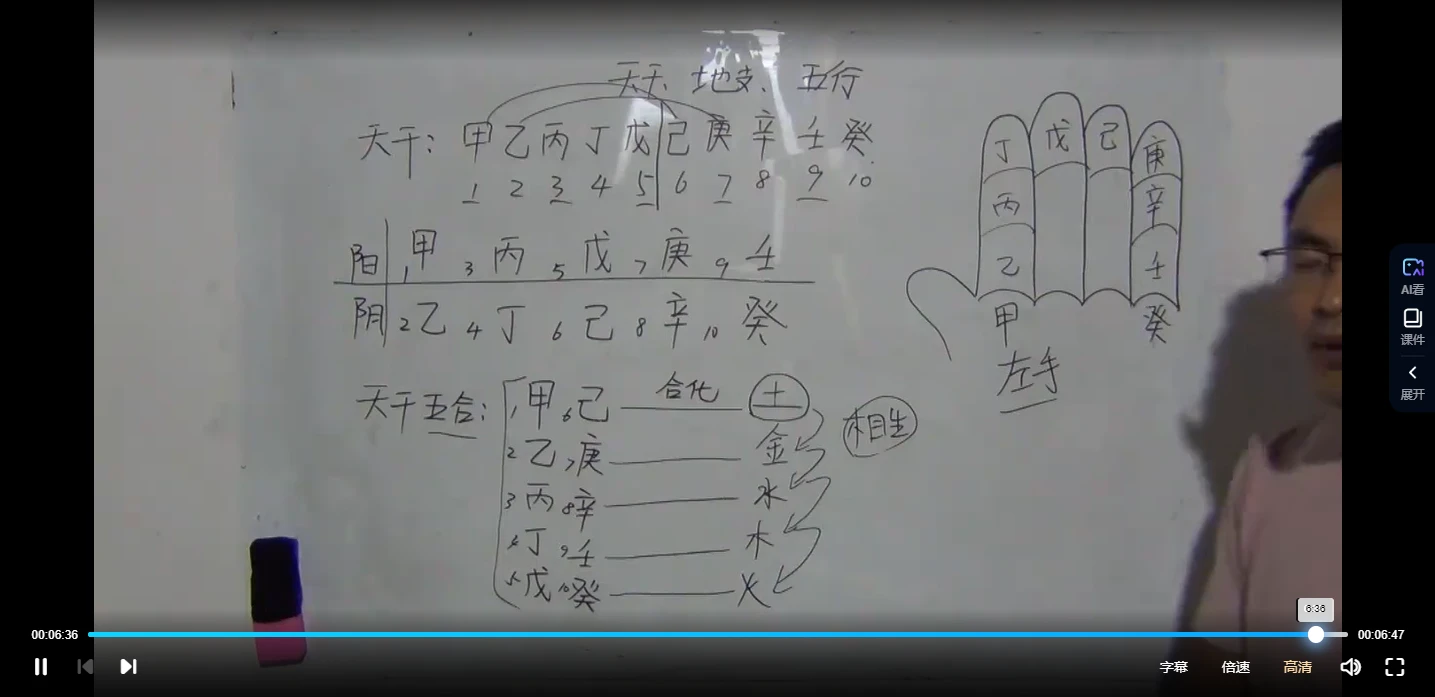 天干、地支、五行
天干：甲乙丙丁戊己庚辛壬癸
1 2 3 4 5 6 7 8 9 10
阳 1甲 3丙 5戊 7庚 9壬
阴 2乙 4丁 6己 8辛 10癸
天干五合：1甲6己 合化 土
2乙7庚 金
3丙8辛 水
4丁9壬 木
5戊10癸 火
相生
丁 戊 己 庚
丙 辛
乙 壬
甲 癸
左手
AI看
课件
展开
6:36
00:06:36
00:06:47
字幕 倍速 高清